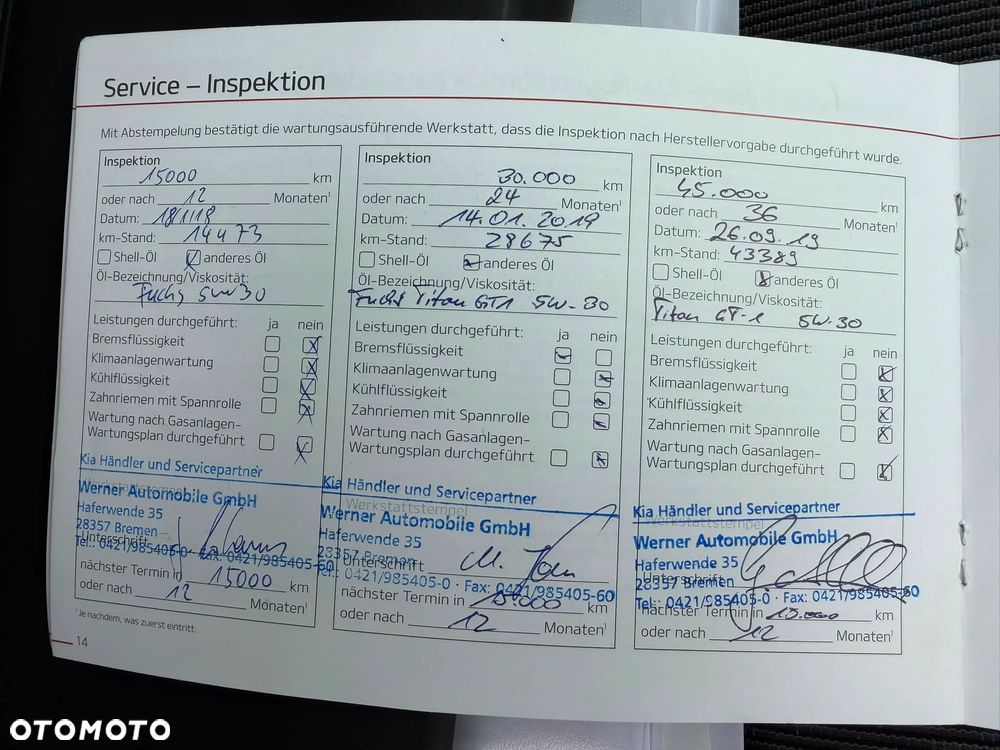 Service – Inspektion
Mit Abstempelung bestätigt die wartungsausführende Werkstatt, dass die Inspektion nach Herstellervorgabe durchgeführt wurde.
Inspektion
15000 km
oder nach 12 Monaten¹
Datum: 18/1/18
km-Stand: 14473
Shell-Öl anderes Öl
Öl-Bezeichnung/Viskosität:
Fuchs 5W30
Leistungen durchgeführt: ja nein
Bremsflüssigkeit
Klimaanlagenwartung
Kühlflüssigkeit
Zahnriemen mit Spannrolle
Wartung nach Gasanlagen-
Wartungsplan durchgeführt
Kia Händler und Servicepartner
Werner Automobile GmbH
Haferwende 35
28357 Bremen
Unterschrift
Tel.: 0421/985405-0 · Fax: 0421/985405-60
nächster Termin in 15000 km
oder nach 12 Monaten¹
Inspektion
30.000 km
oder nach 24 Monaten¹
Datum: 14.01.2019
km-Stand: 28675
Shell-Öl anderes Öl
Öl-Bezeichnung/Viskosität:
Fuchs Titan GT1 5W-30
Leistungen durchgeführt: ja nein
Bremsflüssigkeit
Klimaanlagenwartung
Kühlflüssigkeit
Zahnriemen mit Spannrolle
Wartung nach Gasanlagen-
Wartungsplan durchgeführt
Kia Händler und Servicepartner
Werkstattstempel
Werner Automobile GmbH
Haferwende 35
28357 Bremen
Unterschrift
Tel.: 0421/985405-0 · Fax: 0421/985405-60
nächster Termin in 15.000 km
oder nach 12 Monaten¹
Inspektion
45.000 km
oder nach 36 Monaten¹
Datum: 26.09.19
km-Stand: 43389
Shell-Öl anderes Öl
Öl-Bezeichnung/Viskosität:
Titan GT-1 5W-30
Leistungen durchgeführt: ja nein
Bremsflüssigkeit
Klimaanlagenwartung
Kühlflüssigkeit
Zahnriemen mit Spannrolle
Wartung nach Gasanlagen-
Wartungsplan durchgeführt
Kia Händler und Servicepartner
Werkstattstempel
Werner Automobile GmbH
Haferwende 35
Unterschrift
28357 Bremen
Tel.: 0421/985405-0 · Fax: 0421/985405-60
nächster Termin in 15.000 km
oder nach 12 Monaten¹
¹ Je nachdem, was zuerst eintritt.
14
OTOMOTO